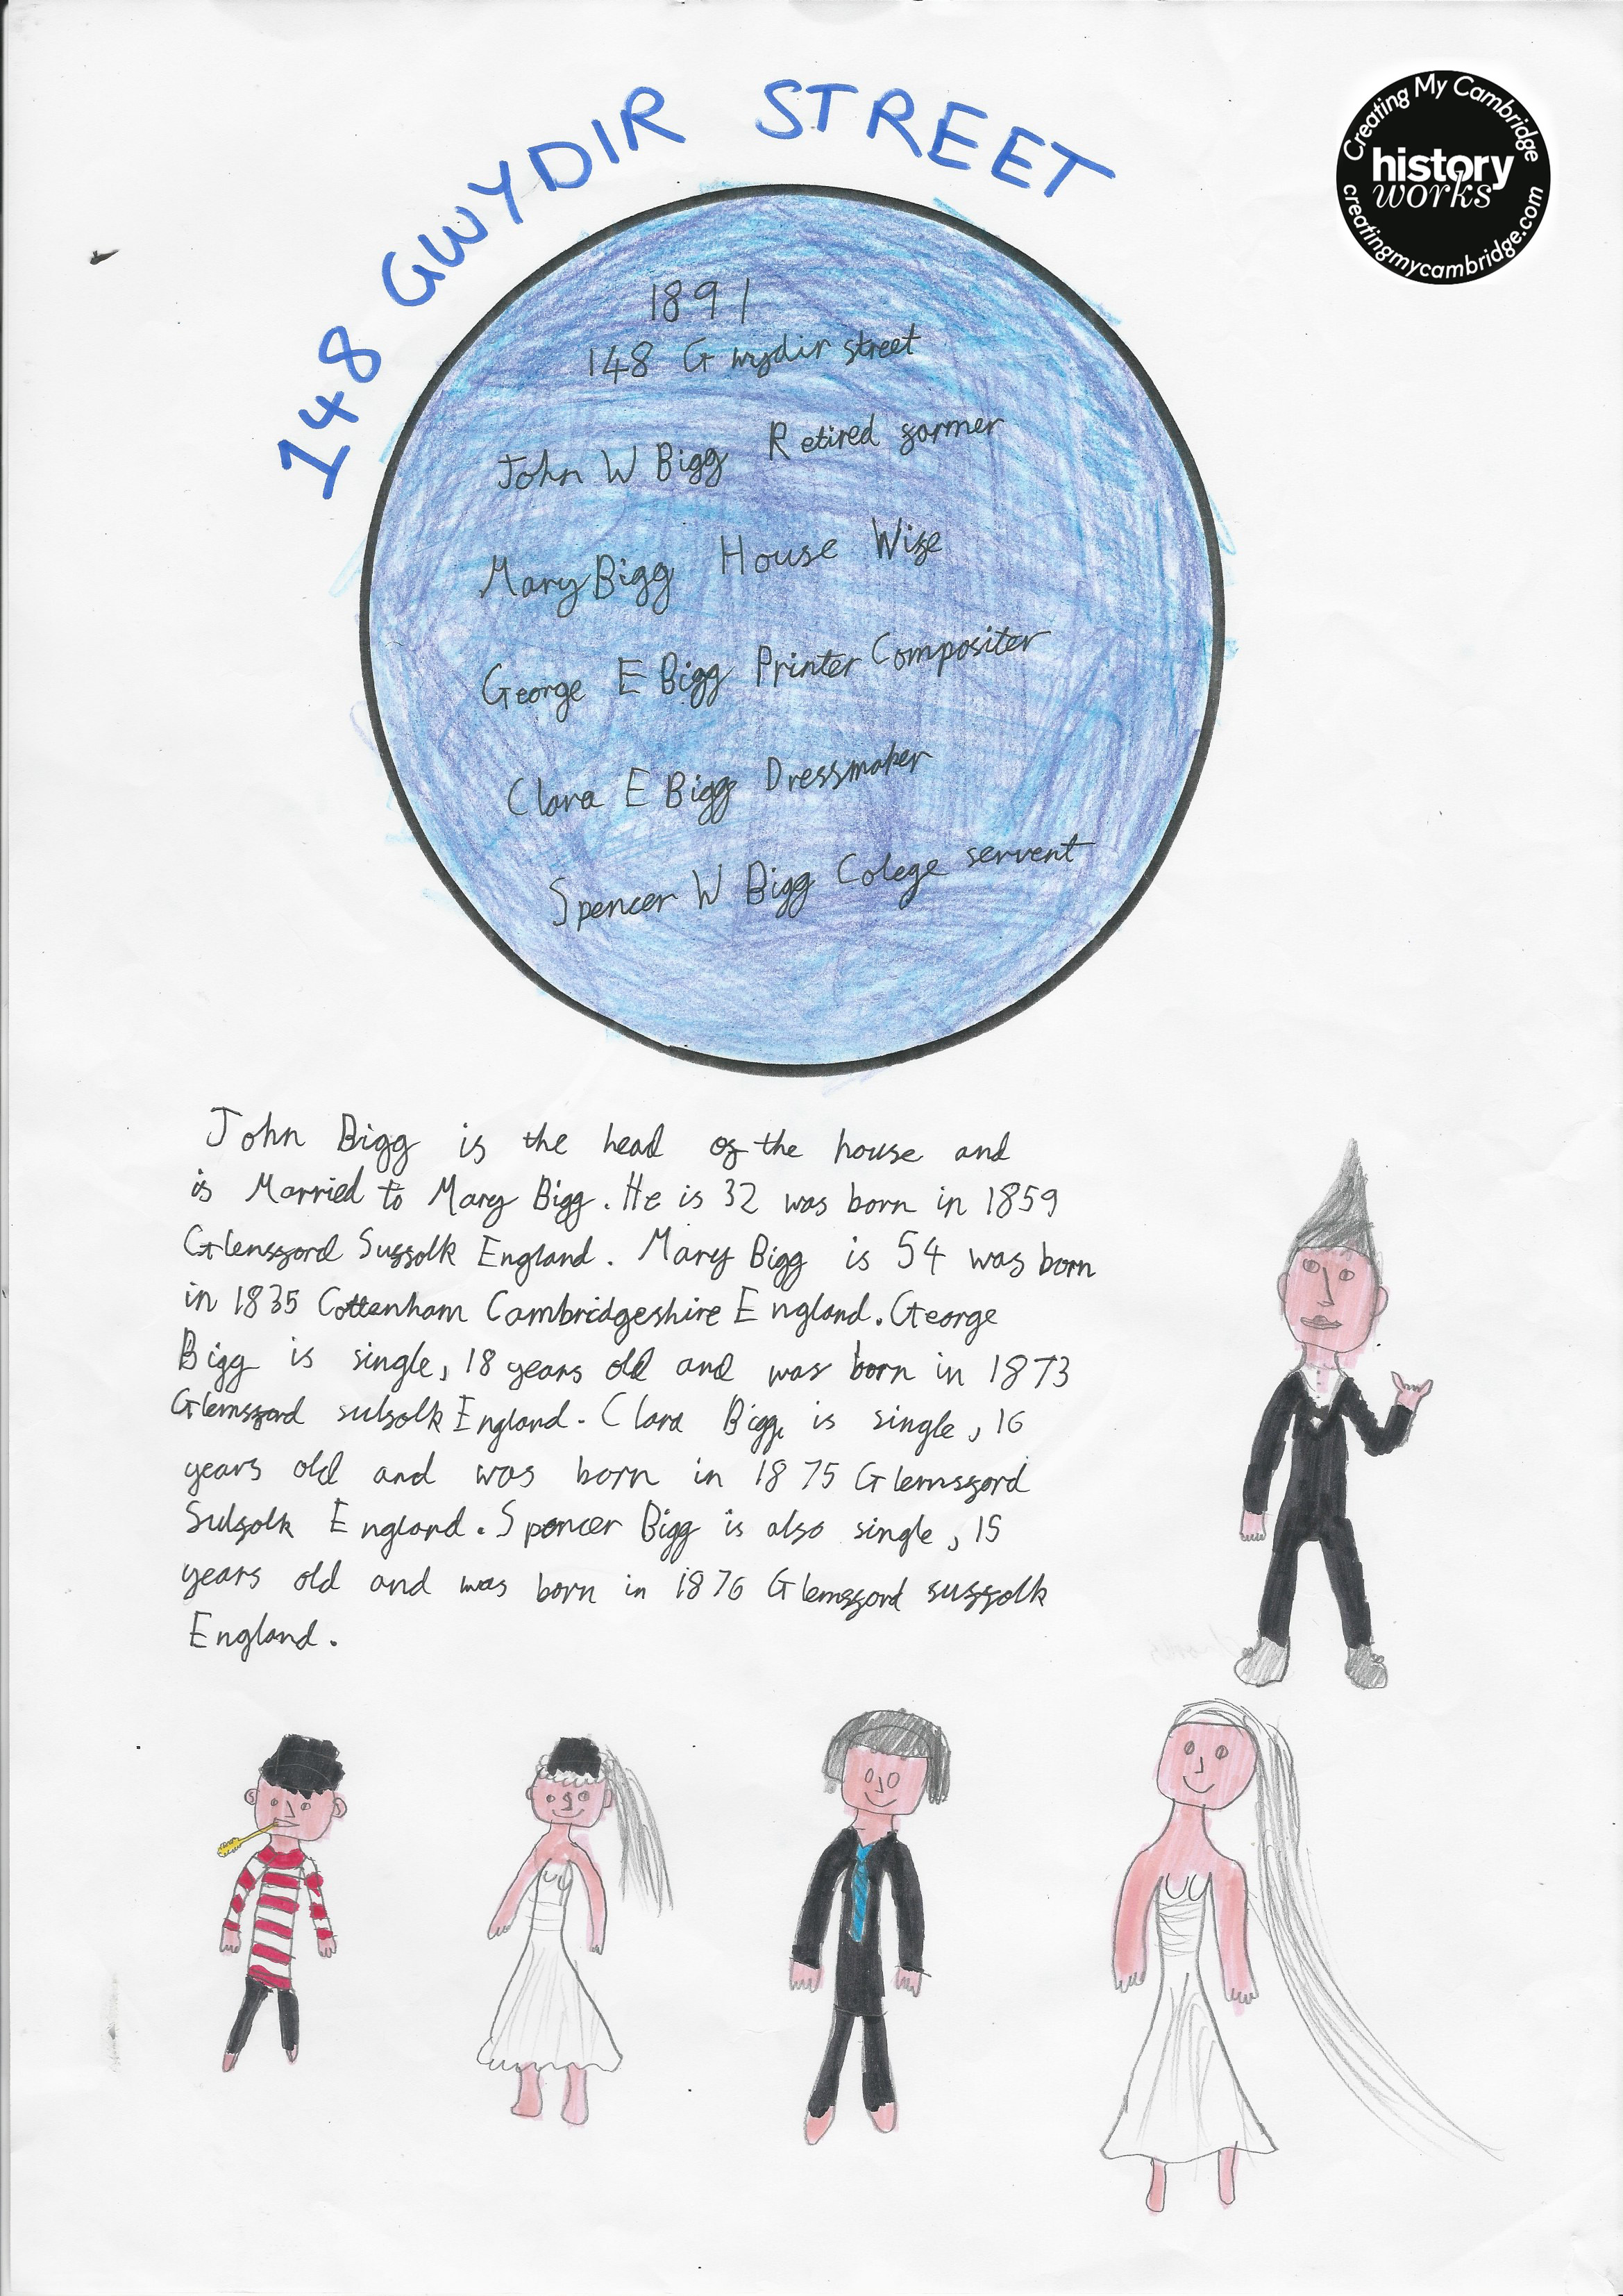 148 GWYDIR STREET
Creating My Cambridge
history
works
creatingmycambridge.com
1891
148 Gwydir street
John W Bigg Retired farmer
Mary Bigg House Wife
George E Bigg Printer Compositer
Clara E Bigg Dressmaker
Spencer W Bigg Colege servent
John Bigg is the head of the house and
is Married to Mary Bigg. He is 32 was born in 1859
Glensford Suffolk England. Mary Bigg is 54 was born
in 1835 Cottenham Cambridgeshire England. George
Bigg is single, 18 years old and was born in 1873
Glemsford sulfolk England. Clara Bigg is single, 16
years old and was born in 1875 Glemsford
Sulfolk England. Spencer Bigg is also single, 15
years old and was born in 1876 Glemsford suffolk
England.